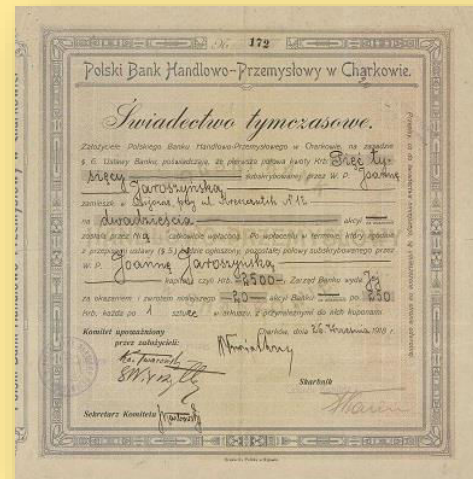 No 172
Polski Bank Handlowo-Przemysłowy w Charkowie.
Świadectwo tymczasowe.
Założyciele Polskiego Banku Handlowo-Przemysłowego w Charkowie, na zasadzie
§ 6. Ustawy Banku, poświadczają, że pierwsza połowa kwoty Krb. Pięć ty-
sięcy subskrybowanej przez W. P. Joannę
Jaroszyńską
zamieszk. w Kijowie, przy ul. Kreszczatik № 12
na dwadzieścia akcyi
została przez Nią całkowicie wpłacona. Po wpłaceniu w terminie, który zgodnie
z przepisami ustawy (§ 5) będzie ogłoszony, pozostałej połowy subskrybowanego przez
W. P. Joannę Jaroszyńską
kapitału czyli Krb. 2500, Zarząd Banku wyda Jej
za okazaniem i zwrotem niniejszego 20 akcyi Banku po 250
Krb. każda po 1 sztuce w odcinku, z przynależnymi do nich kuponami.
Komitet upoważniony
przez założycieli:
Charków, dnia 26 Września 1918 r.
Skarbnik
Sekretarz Komitetu